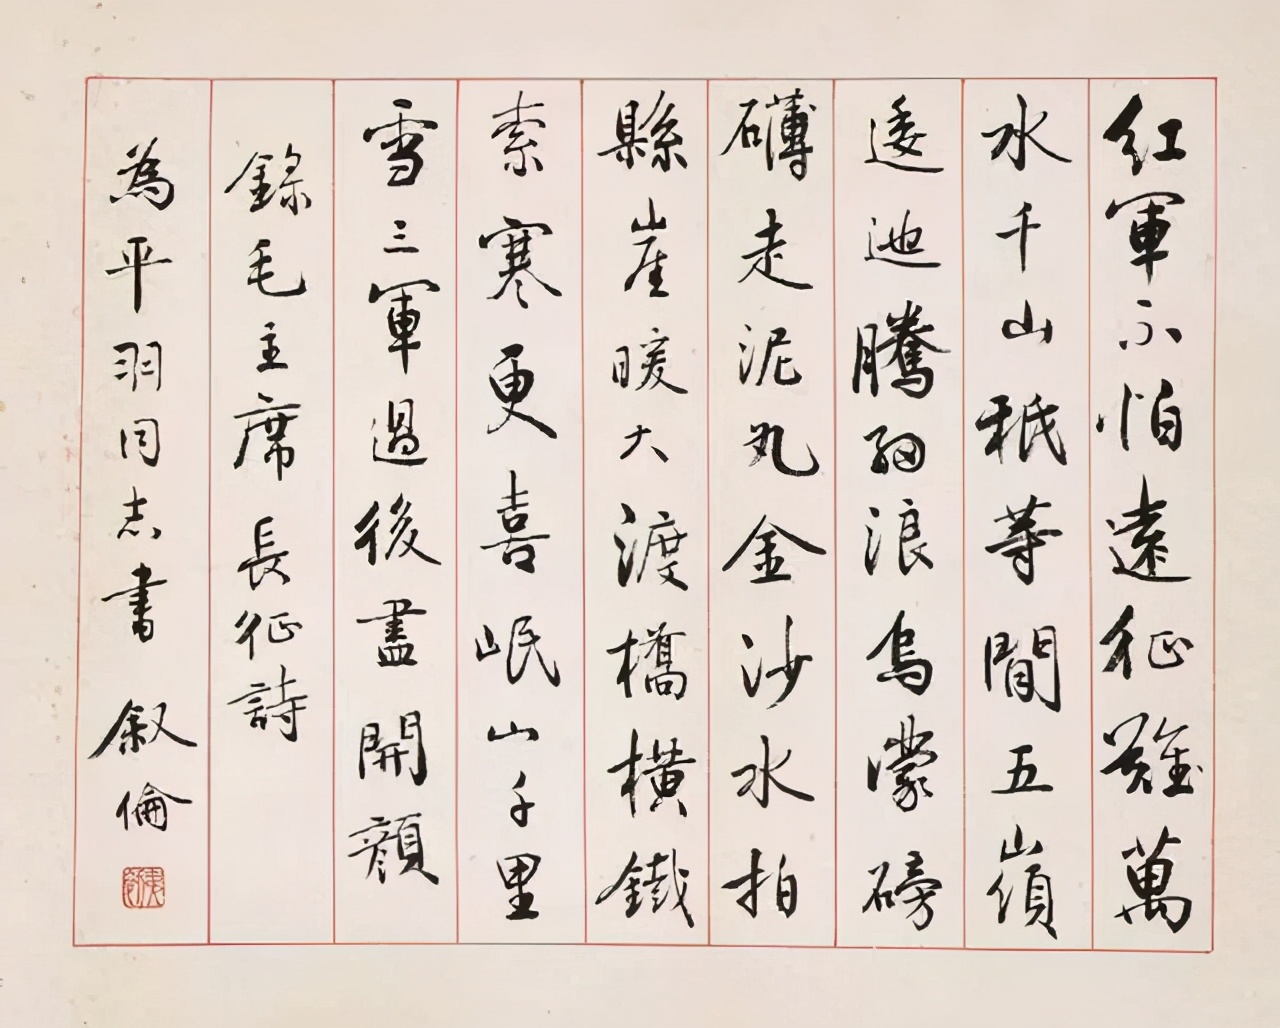 紅軍不怕遠征難萬
水千山祇等閒五嶺
逶迆騰細浪烏濛磅
礴走泥丸金沙水拍
縣崖暖大渡橋橫鐵
索寒更喜岷山千里
雪三軍過後盡開顏
錄毛主席長征詩
為平羽同志書 叙倫